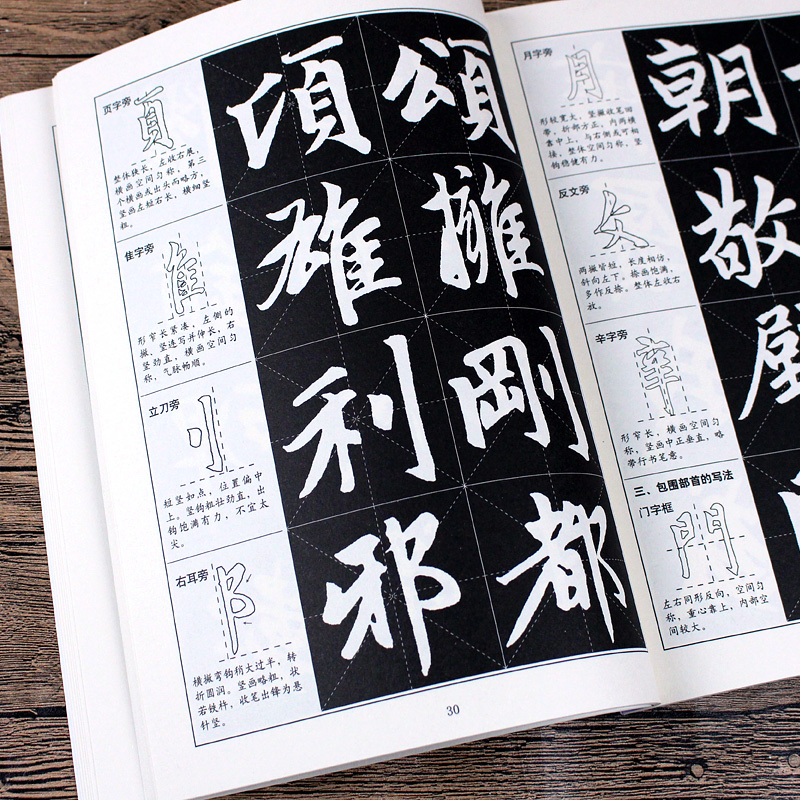 页字旁
頁
整体狭长，左收右展，
横画空间匀称，第三
个横画或出头而略方，
竖画左短右长，横细竖
粗。
項 頌
隹字旁
隹
形窄长紧凑，左侧的
撇、竖连写并伸长；右
竖劲直，横画空间匀
称，气脉畅顺。
雄 擁
立刀旁
刂
短竖如点，位置偏中
上。竖钩粗壮劲直，出
钩饱满有力，不宜太
尖。
利 剛
右耳旁
阝
横撇弯钩稍大过半，转
折圆润。竖画略粗，状
若铁杵，收笔出锋为悬
针竖。
邪 都
30
月字旁
月
形较重大，竖撇收笔回
带，折部方正，内两横
靠中上，与右侧或可相
接，整体空间匀称，竖
钩稳健有力。
朝
反文旁
攵
两撇皆短，长度相仿，
斜向左下，捺画饱满，
多作反捺。整体左收右
放。
敬
辛字旁
辛
形窄长，横画空间匀
称，竖画中正垂直，略
带行书笔意。
三、包围部首的写法
门字框
門
左右同形反向，空间匀
称，重心靠上，内部空
间较大。